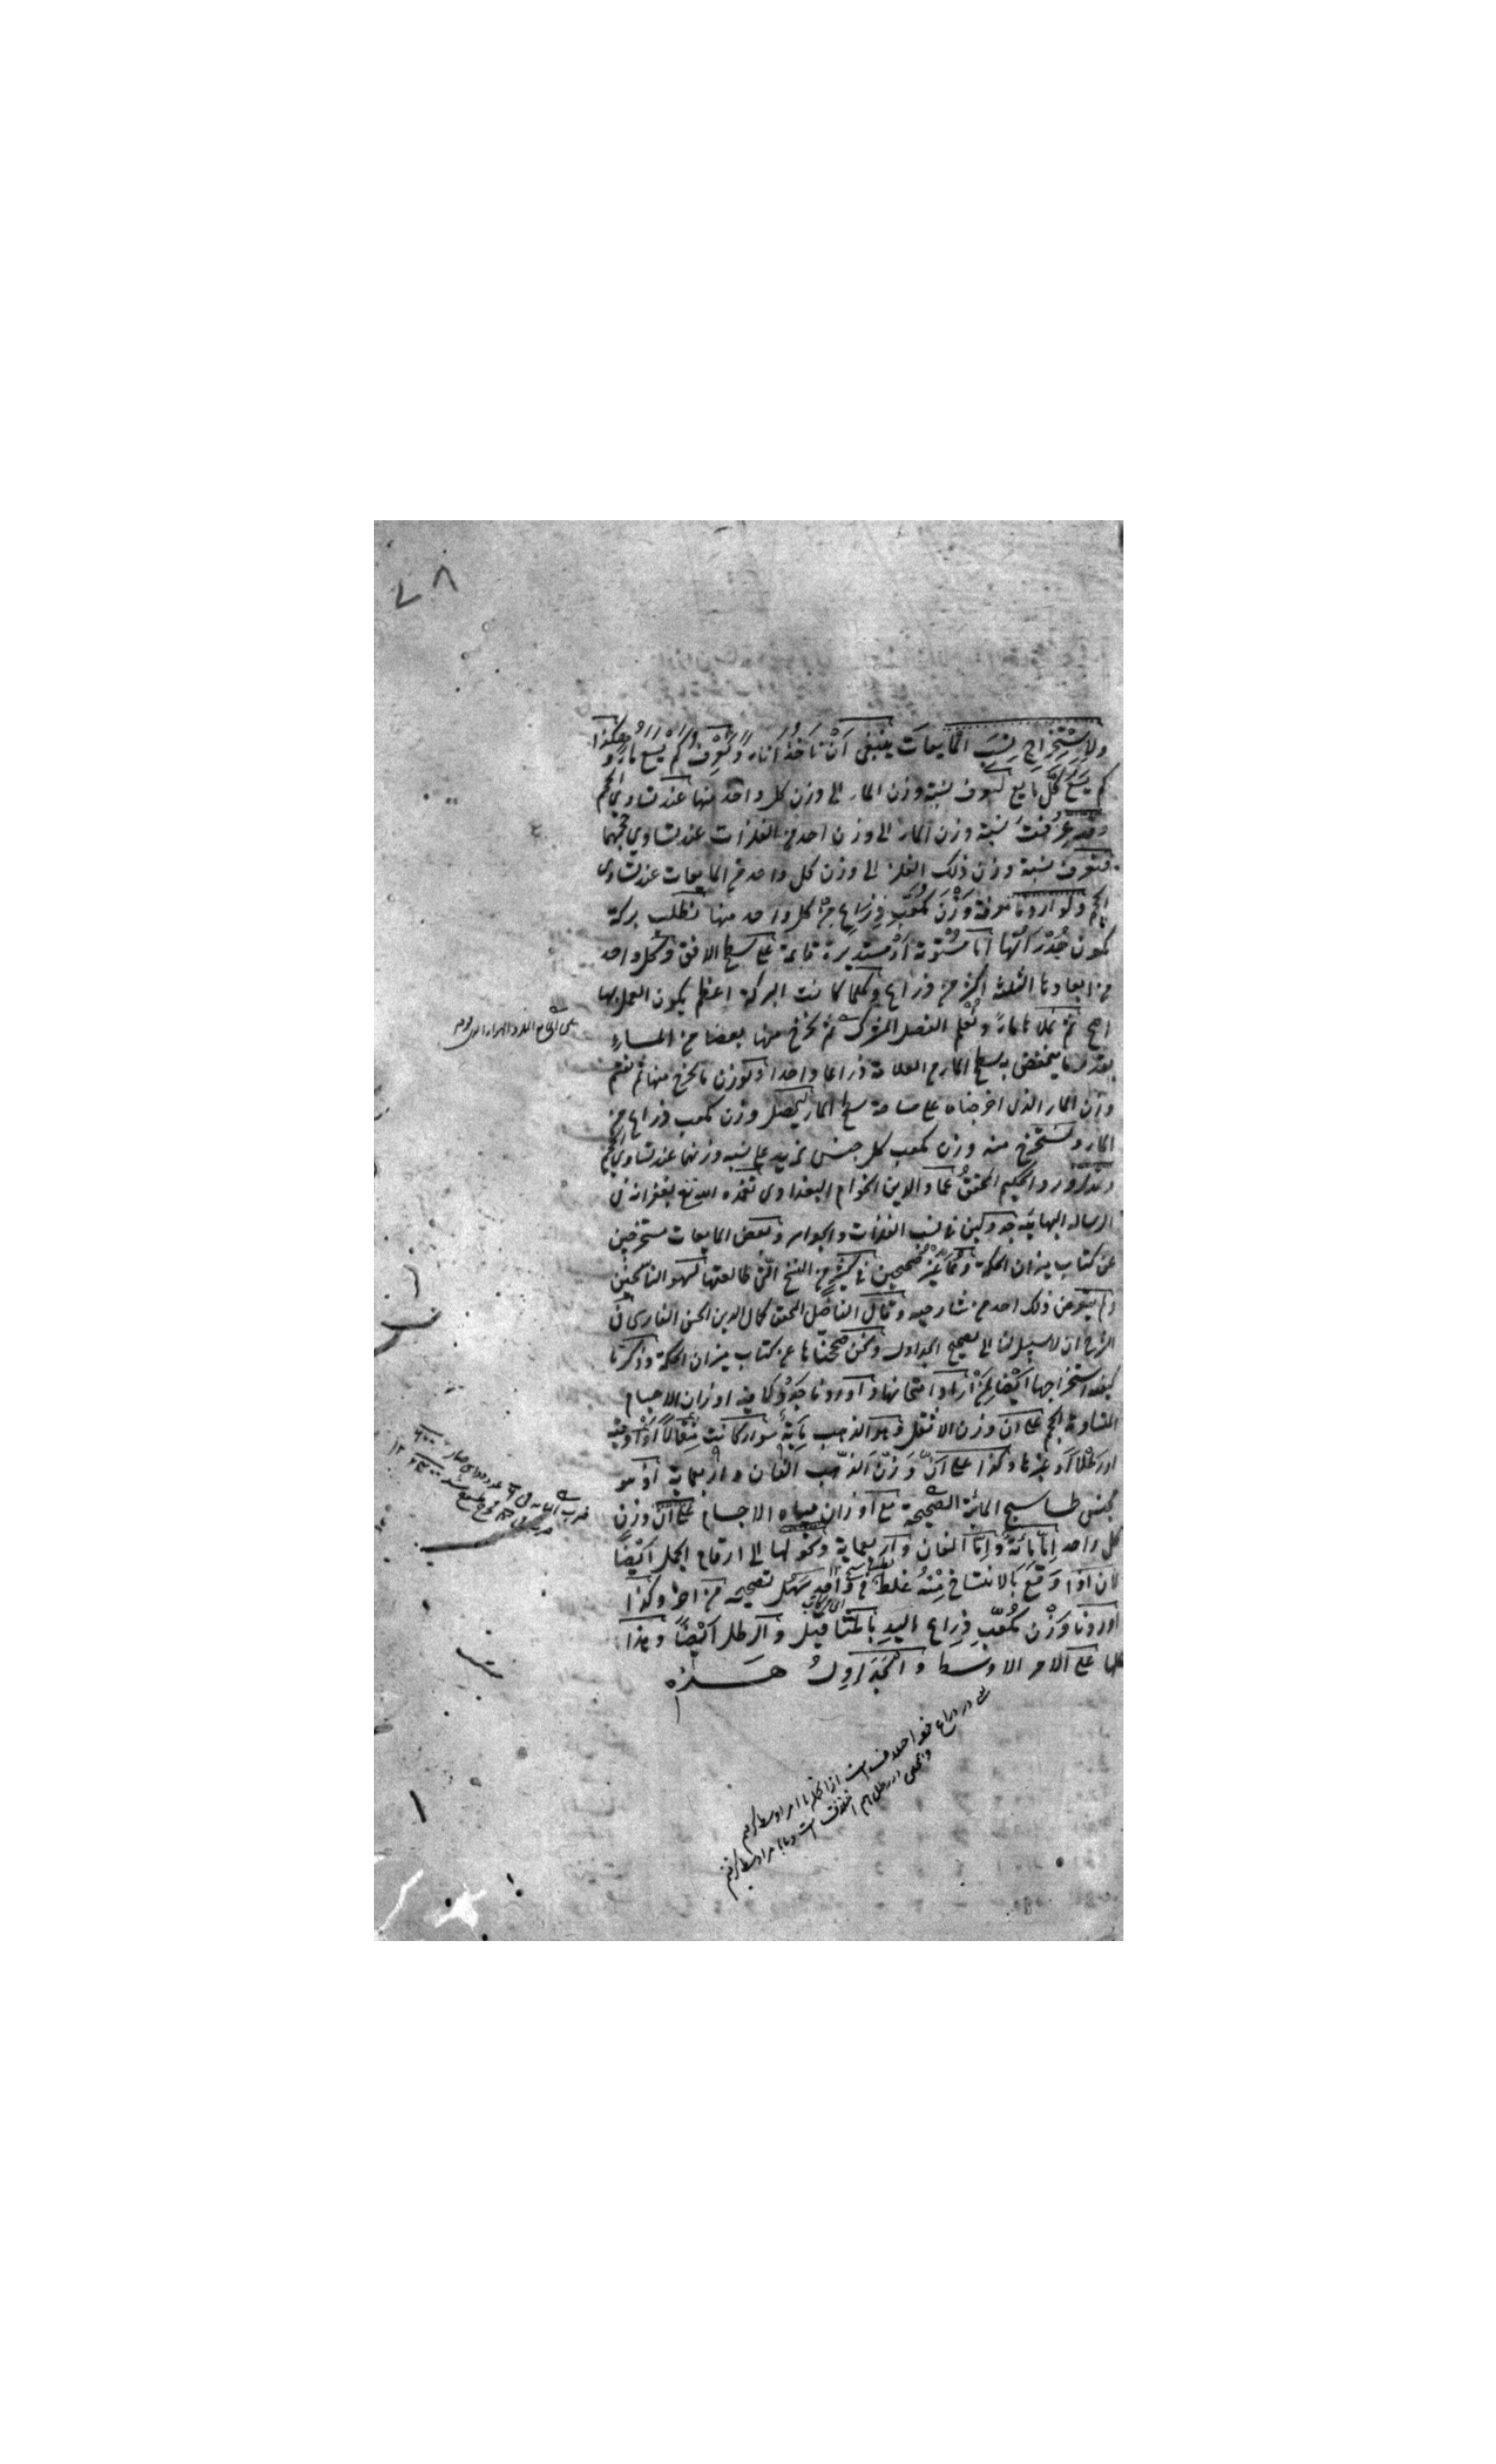 ٧٨
ولاستخراج نسب المايعات ينبغى أن نأخذ اناء ونعرف كم يسع ماء و
كم يسع كل مايع لنعرف نسبة وزن الماء الى وزن كل واحد منها عند تساوي الحجم
وقد عرفت نسبة وزن الماء الى وزن احد من الفلزات عند تساوي حجمهما
فنعرف نسبة وزن ذلك الفلز الى وزن كل واحد من المايعات عند تساوى
الحجم ولو اردنا معرفة وزن مكعب ذراع من كل واحد منها نطلب بركة
يكون جدرانها مستوية او مستديرة قائمة على سطح الافق وكل واحد
من ابعادها الثلثة اكثر من ذراع وكلما كانت البركة اعظم يكون العمل بها
اصح ثم نملاها ماء ونعلم الفصل المشترك ثم نخرج منها بعضا من الماء
بقدر ما ينخفض به سطح الماء من العلامة ذراعا واحدا ونوزن ما نخرج منها ثم نقسم
وزن الماء الذى اخرجناه على مساحة سطح الماء ليحصل وزن مكعب ذراع من
الماء ونستخرج منه وزن مكعب كل جنس نريد على نسبة وزنهما عند تساوي الحجم
وقد اورد الحكيم المحقق عماد الدين الخوام البغدادى تغمده الله تع بغفرانه فى
الرسالة البهائية جدولين فى نسب الفلزات والجواهر وبعض المايعات مستخرجين
عن كتاب ميزان الحكمة وهما غير صحيحين فى كثير من النسخ التى طالعتها لسهو الناسخين
ولم يتعرض ذلك احد من شارحيه وقال الفاضل المحقق كمال الدين الحسن الفارسى فى
الشرح ان لا سبيل لنا الى تصحيح الجداول ونحن صححناها عن كتاب ميزان الحكمة وذكرنا
كيفية استخراجها ايضا لمن أراد امتحانها واوردنا جدولا فيه اوزان الاجسام
المتساوية الحجم على ان وزن الاثقل وهو الذهب مائة سواء كانت مثقالا أو أوقية
او رطلا أو غيرها وكذا على أن وزن الذهب الفان واربعماية اذ هو
مجنس طساسيج المائة الصحيحة مع أوزان مياه الاجسام على أن وزن
كل واحد إما مائة وإما الفان واربعماية ونحولها الى ارقام الجمل ايضا
لان اذا وقع بالانتساخ منه غلط فى واحد سهل تصحيحه من الاخر وكذا
اوردنا وزن مكعب ذراع اليد بالمثاقيل والرطل ايضا وهذا
كلها على الامر الاوسط والجداول هذه